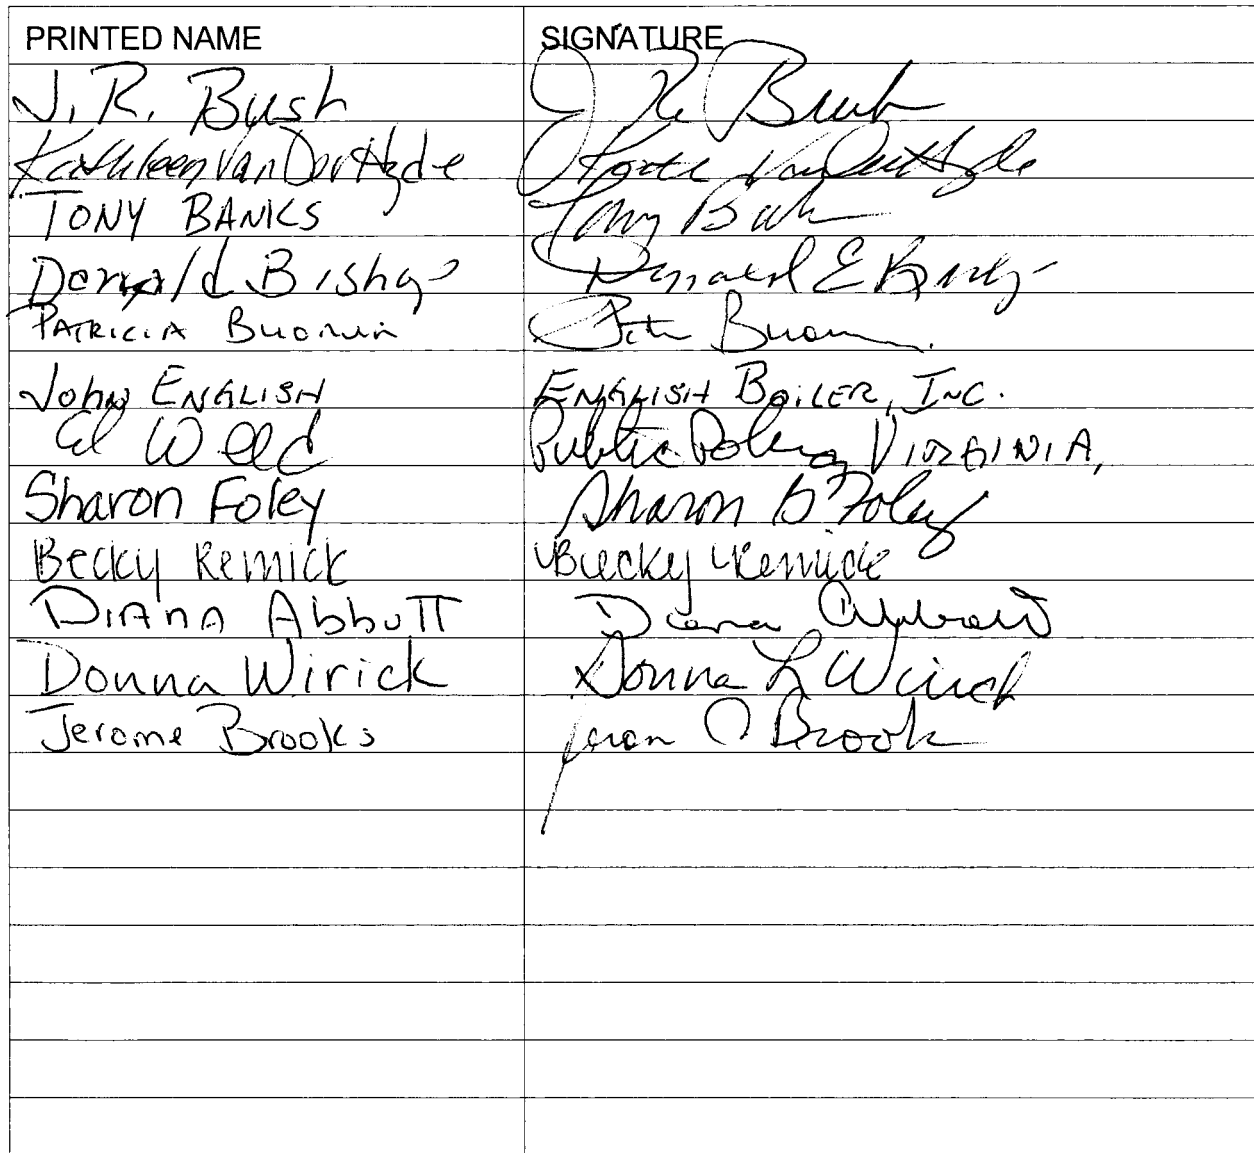 PRINTED NAME SIGNATURE
J. R. Bush J R Bush
Kathleen Van Der Hyde Van Der Hyde
TONY BANKS Tony Bank
Donald Bishop Donald E
PATRICIA
John ENGLISH ENGLISH BOILER, INC.
Al Weed Public Policy VIRGINIA,
Sharon Foley Sharon B Foley
Becky Remick Becky Remick
DIANA Abbott Diana Abbott
Donna Wirick Donna L Wirick
Jerome Brooks Brook